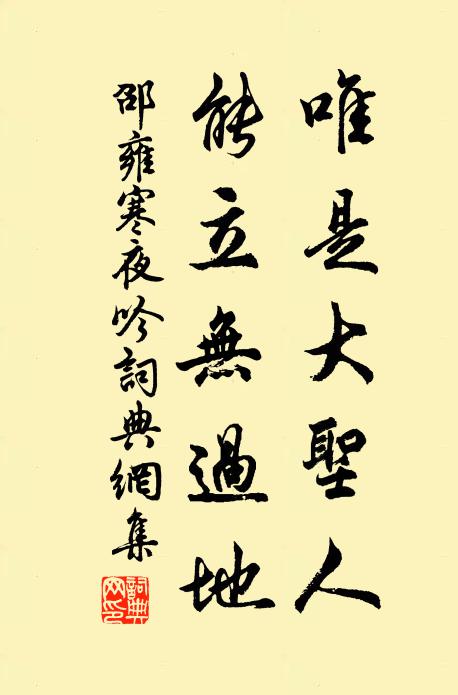 唯是大聖人
能立無過地
邵雍寒夜吟詞典網集
詞典網印